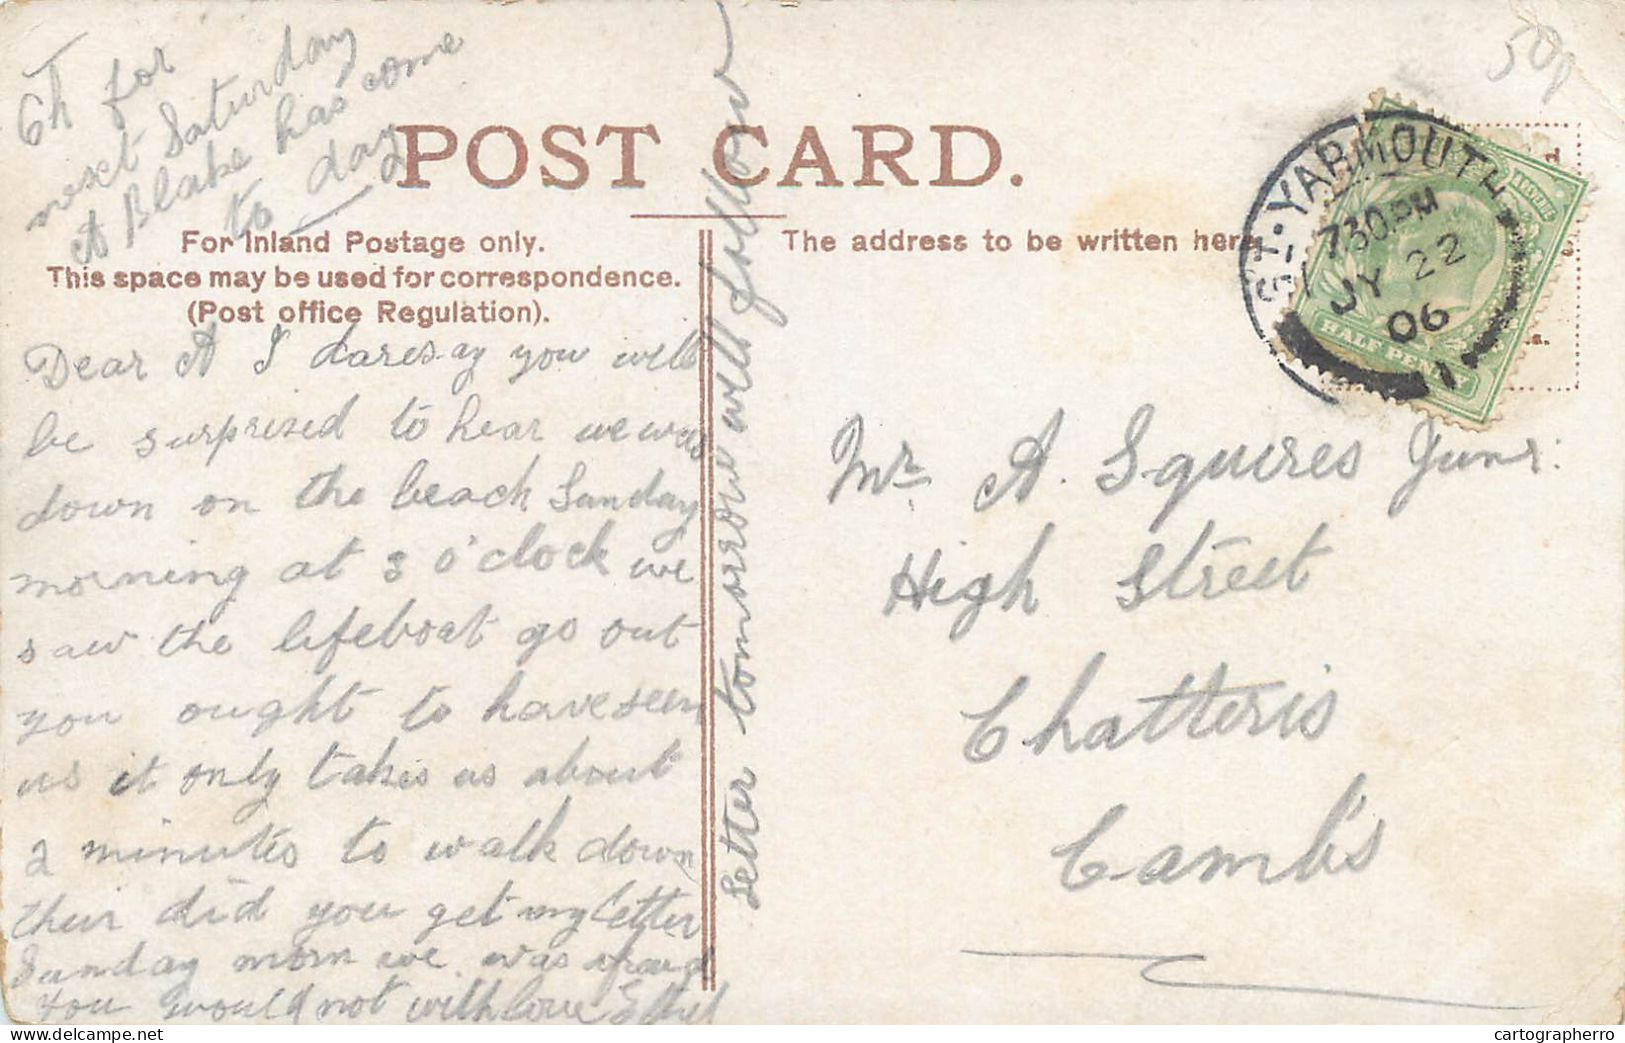 Oh for
next Saturday
A Blake has come
to day
POST CARD.
For Inland Postage only.
This space may be used for correspondence.
(Post office Regulation).
The address to be written here.
GT. YARMOUTH
7.30 PM
JY 22
06
1
HALF PENNY
50p
Dear A I daresay you will
be surprised to hear we was
down on the beach Sunday
morning at 3 o'clock we
saw the lifeboat go out
you ought to have seen
us it only takes us about
2 minutes to walk down
their did you get my letter
Sunday morn we was afraid
you would not with love Ethel
Letter tomorrow will follow
Mr. A. Squires Junr.
High Street
Chatteris
Camb's
cartographerro